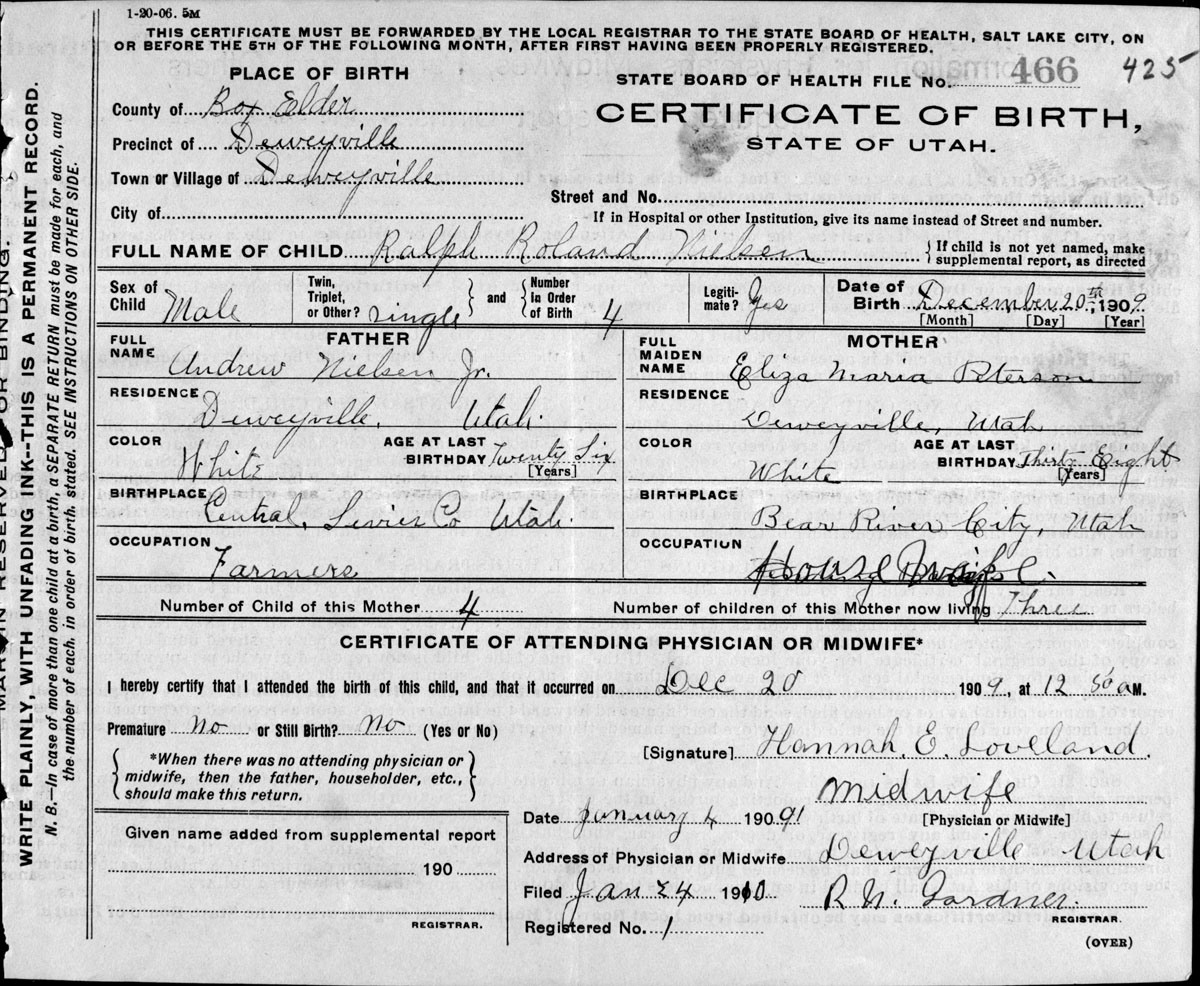 1-20-06. 5M
THIS CERTIFICATE MUST BE FORWARDED BY THE LOCAL REGISTRAR TO THE STATE BOARD OF HEALTH, SALT LAKE CITY, ON
OR BEFORE THE 5TH OF THE FOLLOWING MONTH, AFTER FIRST HAVING BEEN PROPERLY REGISTERED.
PLACE OF BIRTH
County of Box Elder
Precinct of Deweyville
Town or Village of Deweyville
City of
STATE BOARD OF HEALTH FILE No. 466 425
CERTIFICATE OF BIRTH,
STATE OF UTAH.
Street and No.
If in Hospital or other Institution, give its name instead of Street and number.
FULL NAME OF CHILD Ralph Roland Nielsen
If child is not yet named, make
supplemental report, as directed
Sex of Child Male
Twin, Triplet, or Other? single
and
Number in Order of Birth 4
Legitimate? Yes
Date of Birth December 20th, 1909
[Month] [Day] [Year]
FATHER
FULL NAME Andrew Nielsen Jr.
RESIDENCE Deweyville, Utah.
COLOR White
AGE AT LAST BIRTHDAY Twenty Six
[Years]
BIRTHPLACE Central, Sevier Co Utah.
OCCUPATION Farmers
MOTHER
FULL MAIDEN NAME Eliza Maria Peterson
RESIDENCE Deweyville, Utah
COLOR White
AGE AT LAST BIRTHDAY Thirty Eight
[Years]
BIRTHPLACE Bear River City, Utah
OCCUPATION
Number of Child of this Mother 4
Number of children of this Mother now living Three
CERTIFICATE OF ATTENDING PHYSICIAN OR MIDWIFE*
I hereby certify that I attended the birth of this child, and that it occurred on Dec 20 1909, at 12 50 a M.
Premature No or Still Birth? No (Yes or No)
*When there was no attending physician or
midwife, then the father, householder, etc.,
should make this return.
[Signature] Hannah. E. Loveland.
Midwife
[Physician or Midwife]
Given name added from supplemental report
190
REGISTRAR.
Date January 4 1909
Address of Physician or Midwife Deweyville Utah
Filed Jan 24 1910
R. N. Gardner.
REGISTRAR.
Registered No. 1
(OVER)
MARGIN RESERVED FOR BINDING.
WRITE PLAINLY WITH UNFADING INK--THIS IS A PERMANENT RECORD.
N. B.—In case of more than one child at a birth, a SEPARATE RETURN must be made for each, and
the number of each, in order of birth, stated. SEE INSTRUCTIONS ON OTHER SIDE.